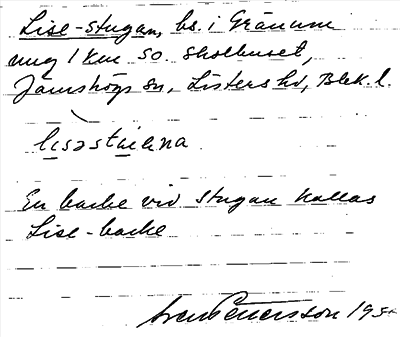 Lise-stugan, bs. i Gränum
ung 1 km SO. skolhuset,
Jämshögs sn, Listers hd, Blek. l.
lisəstuəna
En backe vid stugan kallas
Lise-backe
Sven Petersson 195